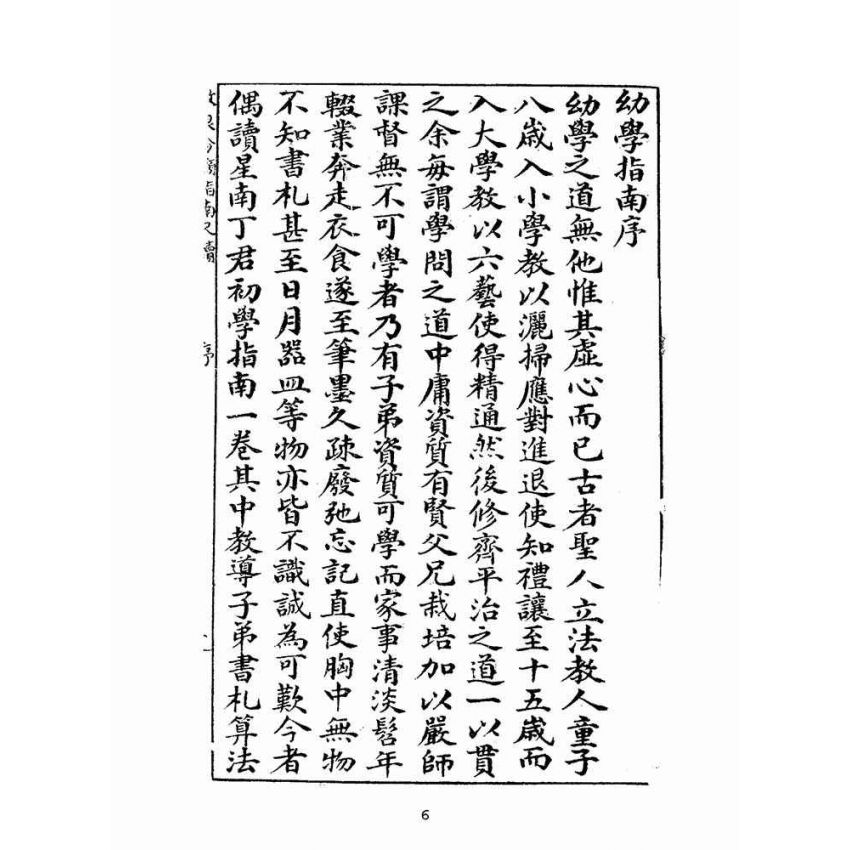 幼學指南序
幼學之道無他惟其虛心而已古者聖人立法教人童子
八歲入小學教以灑掃應對進退使知禮讓至十五歲而
入大學教以六藝使得精通然後修齊平治之道一以貫
之余每謂學問之道中庸資質有賢父兄栽培加以嚴師
課督無不可學者乃有子弟資質可學而家事清淡髫年
輟業奔走衣食遂至筆墨久疎廢弛忘記直使胸中無物
不知書札甚至日月器皿等物亦皆不識誠為可歎今者
偶讀星南丁君初學指南一卷其中教導子弟書札算法
指南尺牘
序
6